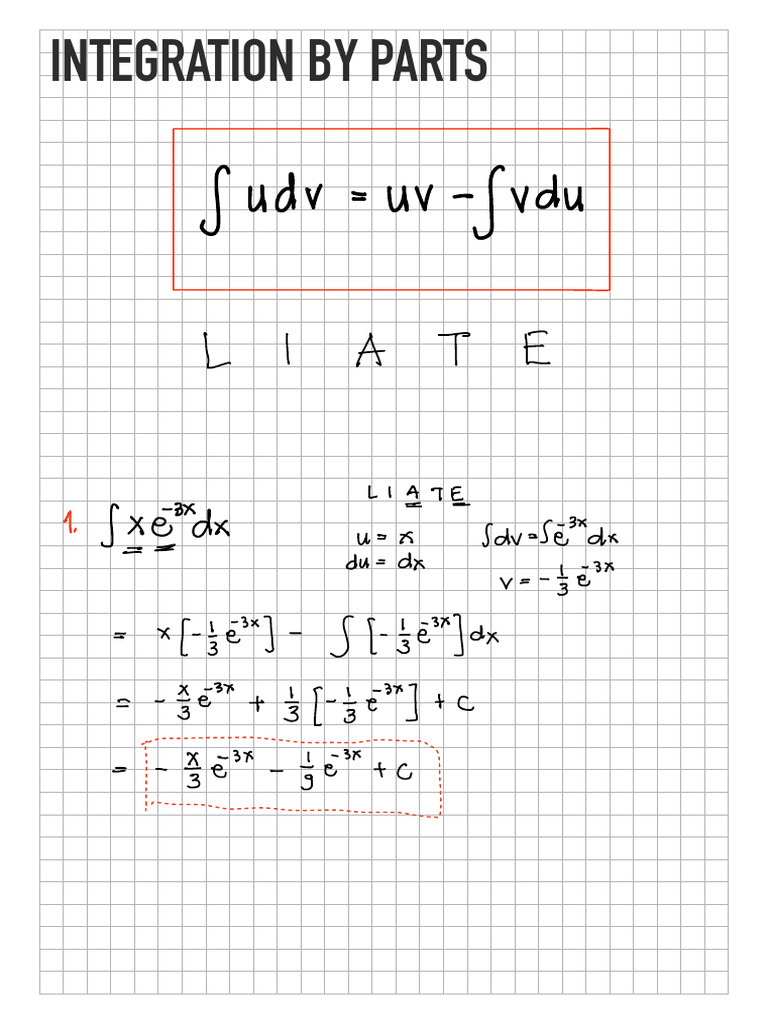 INTEGRATION BY PARTS
∫ u dv = uv - ∫ v du
L I A T E
L I A T E
1. ∫ x e^{-3x} dx
u = x
du = dx
∫ dv = ∫ e^{-3x} dx
v = -1/3 e^{-3x}
= x [-1/3 e^{-3x}] - ∫ [-1/3 e^{-3x}] dx
= - x/3 e^{-3x} + 1/3 [-1/3 e^{-3x}] + C
= - x/3 e^{-3x} - 1/9 e^{-3x} + C